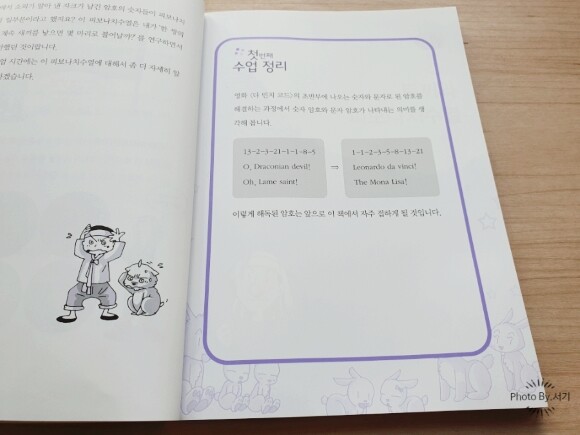 첫번째
수업 정리
영화 《다 빈치 코드》의 초반부에 나오는 숫자와 문자로 된 암호를
해결하는 과정에서 숫자 암호와 문자 암호가 나타내는 의미를 생
각해 봅니다.
13-2-3-21-1-1-8-5
O, Draconian devil!
Oh, Lame saint!
⇒
1-1-2-3-5-8-13-21
Leonardo da vinci!
The Mona Lisa!
이렇게 해독된 암호는 앞으로 이 책에서 자주 접하게 될 것입니다.
남긴 암호의 숫자들이 피보나치
일부분이라고 했지요? 이 피보나치수열은 내가 '한 쌍의
새끼를 낳으면 몇 마리로 불어날까?'를 연구하면서
것이랍니다.
시간에는 이 피보나치수열에 대해서 좀 더 자세히 알
겠습니다.
Photo By.서기